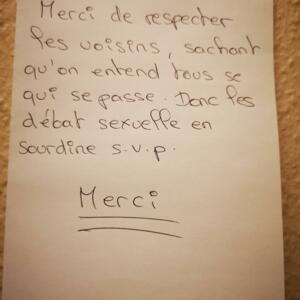 Merci de respecter
les voisins, sachant
qu'on entend tous se
qui se passe. Donc les
débat sexuelle en
sourdine s.v.p.
Merci